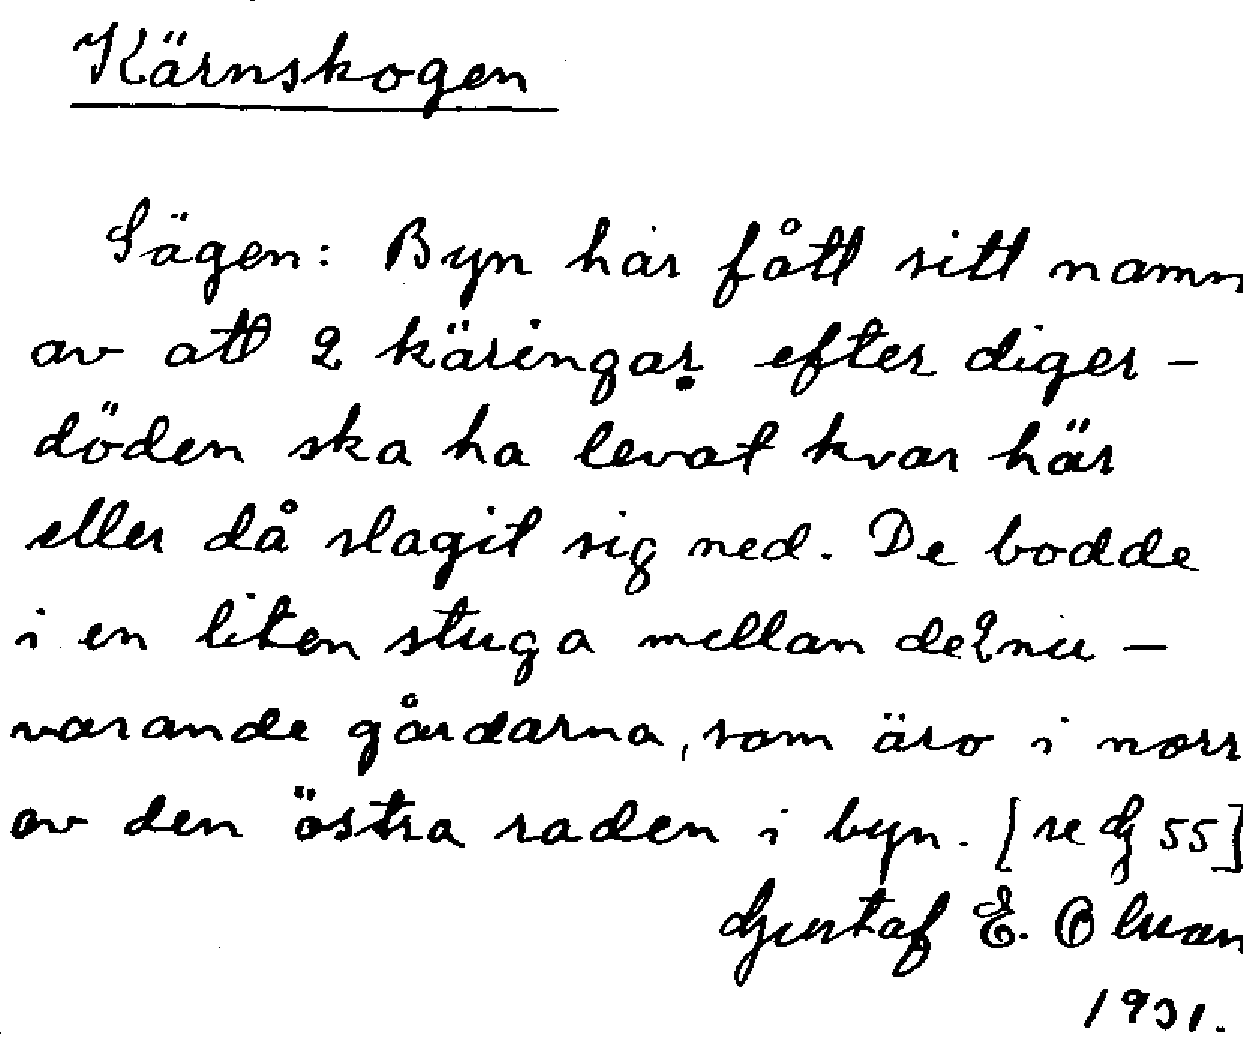 Kärnskogen
Sägen: Byn har fått sitt namn
av att 2 käringar efter diger-
döden ska ha levat kvar här
eller då slagit sig ned. De bodde
i en liten stuga mellan de 2 nu-
varande gårdarna, som äro i norr
av den östra raden i byn. [se G 55]
Gustaf E. Olsson
1931.